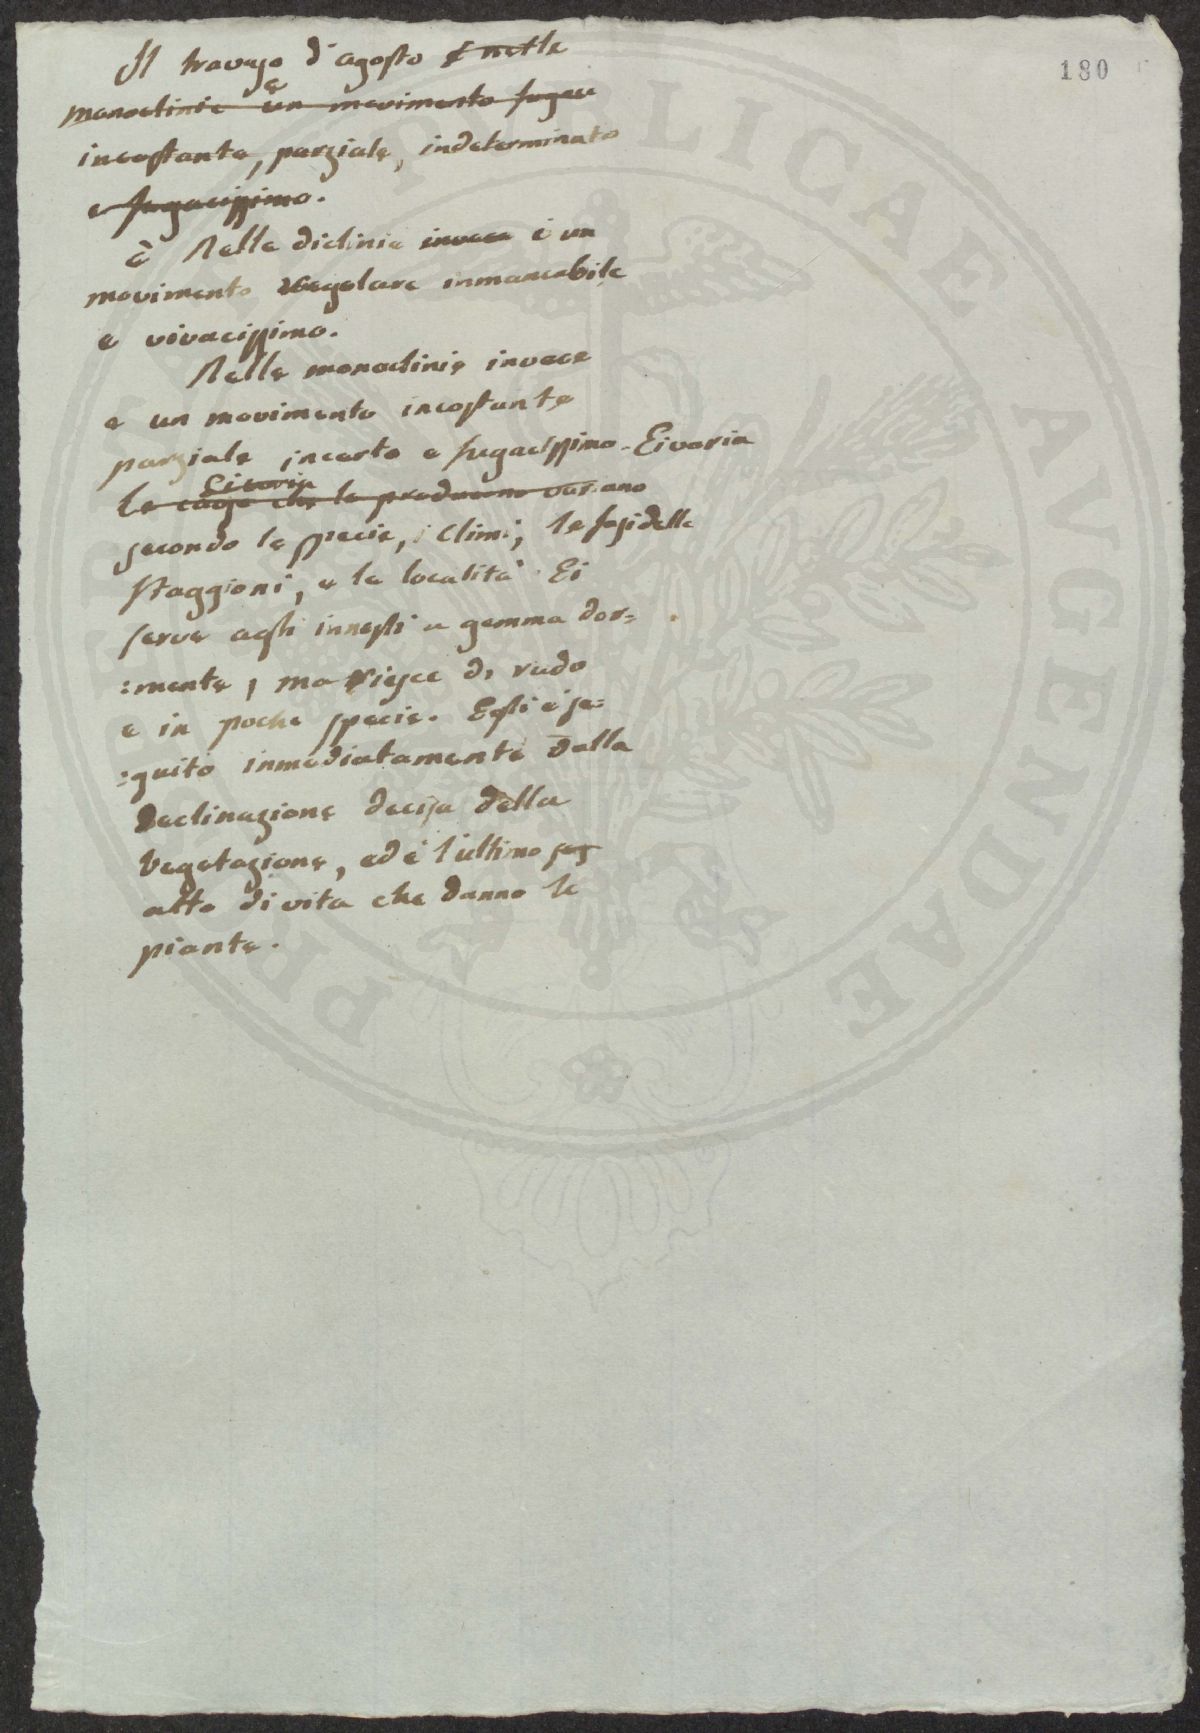 180
Il travaso d'agosto è nelle
monoclinie è un movimento fugace
incostante, parziale, indeterminato
e fugacissimo.
è Nelle diclinie invece è un
movimento regolare inmancabile
e vivacissimo.
Nelle monoclinie invece
e un movimento incostante
parziale incerto e fugacissimo. Ei varia
Ei varia
le cause che lo producono variano
secondo le specie, i climi, le fasi delle
staggioni, e le località. Ei
serve agli innesti a gemma dor=
:mente, ma riesce di rado
e in poche specie. Egli è se=
:guito inmediatamente dalla
declinazione decisa della
vegetazione, ed è l'ultimo seg
atto di vita che danno le
piante.
PUBLICAE AVGENDAE